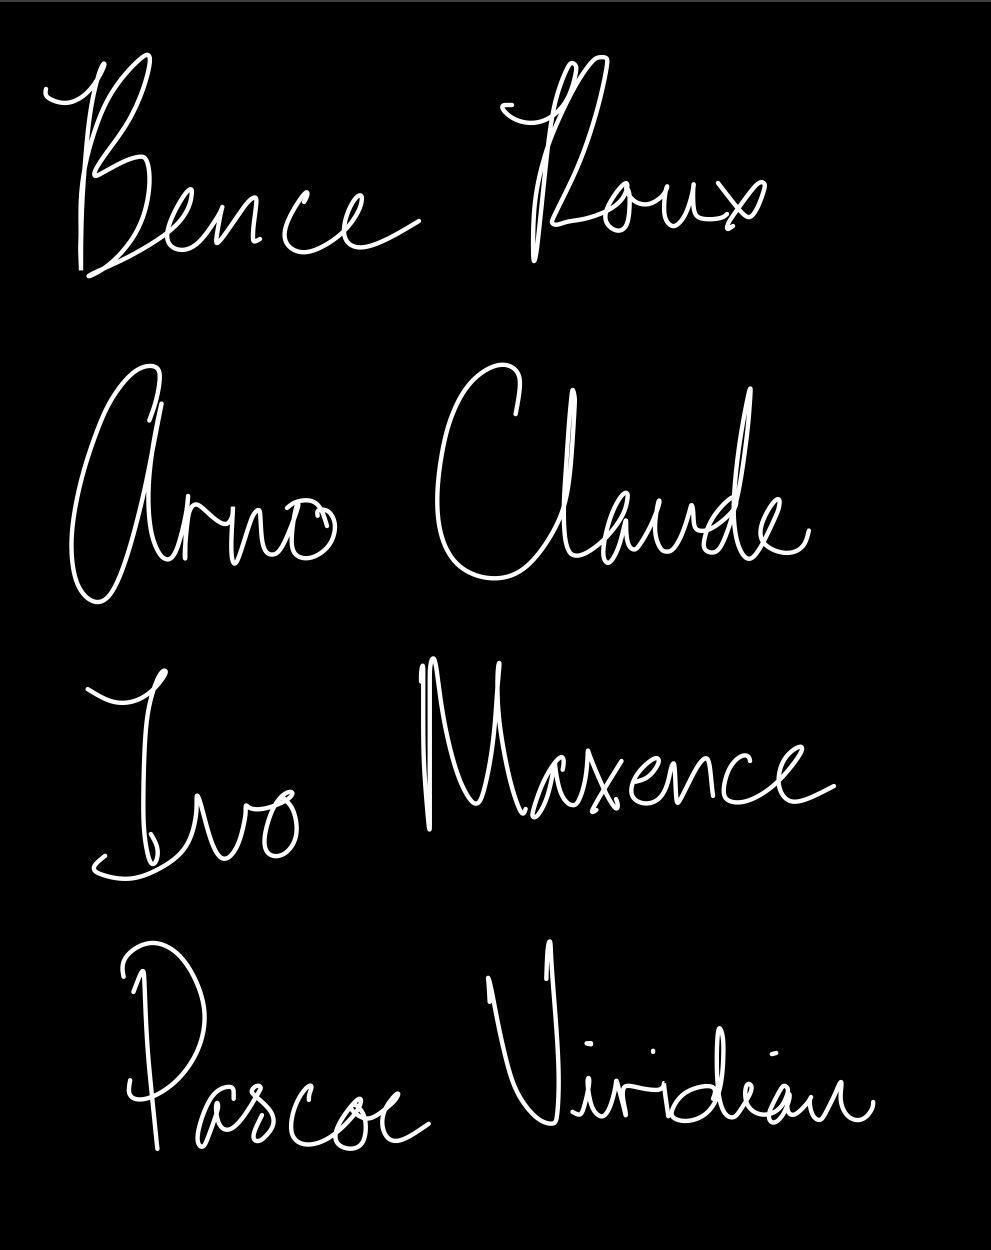 Bence Roux
Arno Claude
Ivo Maxence
Pascoe Viridian